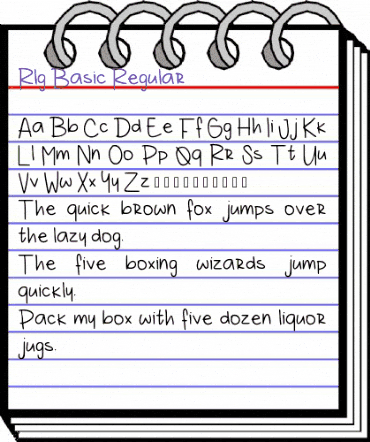 Rlg Basic Regular
Aa Bb Cc Dd Ee Ff Gg Hh Ii Jj Kk
Ll Mm Nn Oo Pp Qq Rr Ss Tt Uu
Vv Ww Xx Yy Zz
The quick brown fox jumps over
the lazy dog.
The five boxing wizards jump
quickly.
Pack my box with five dozen liquor
jugs.